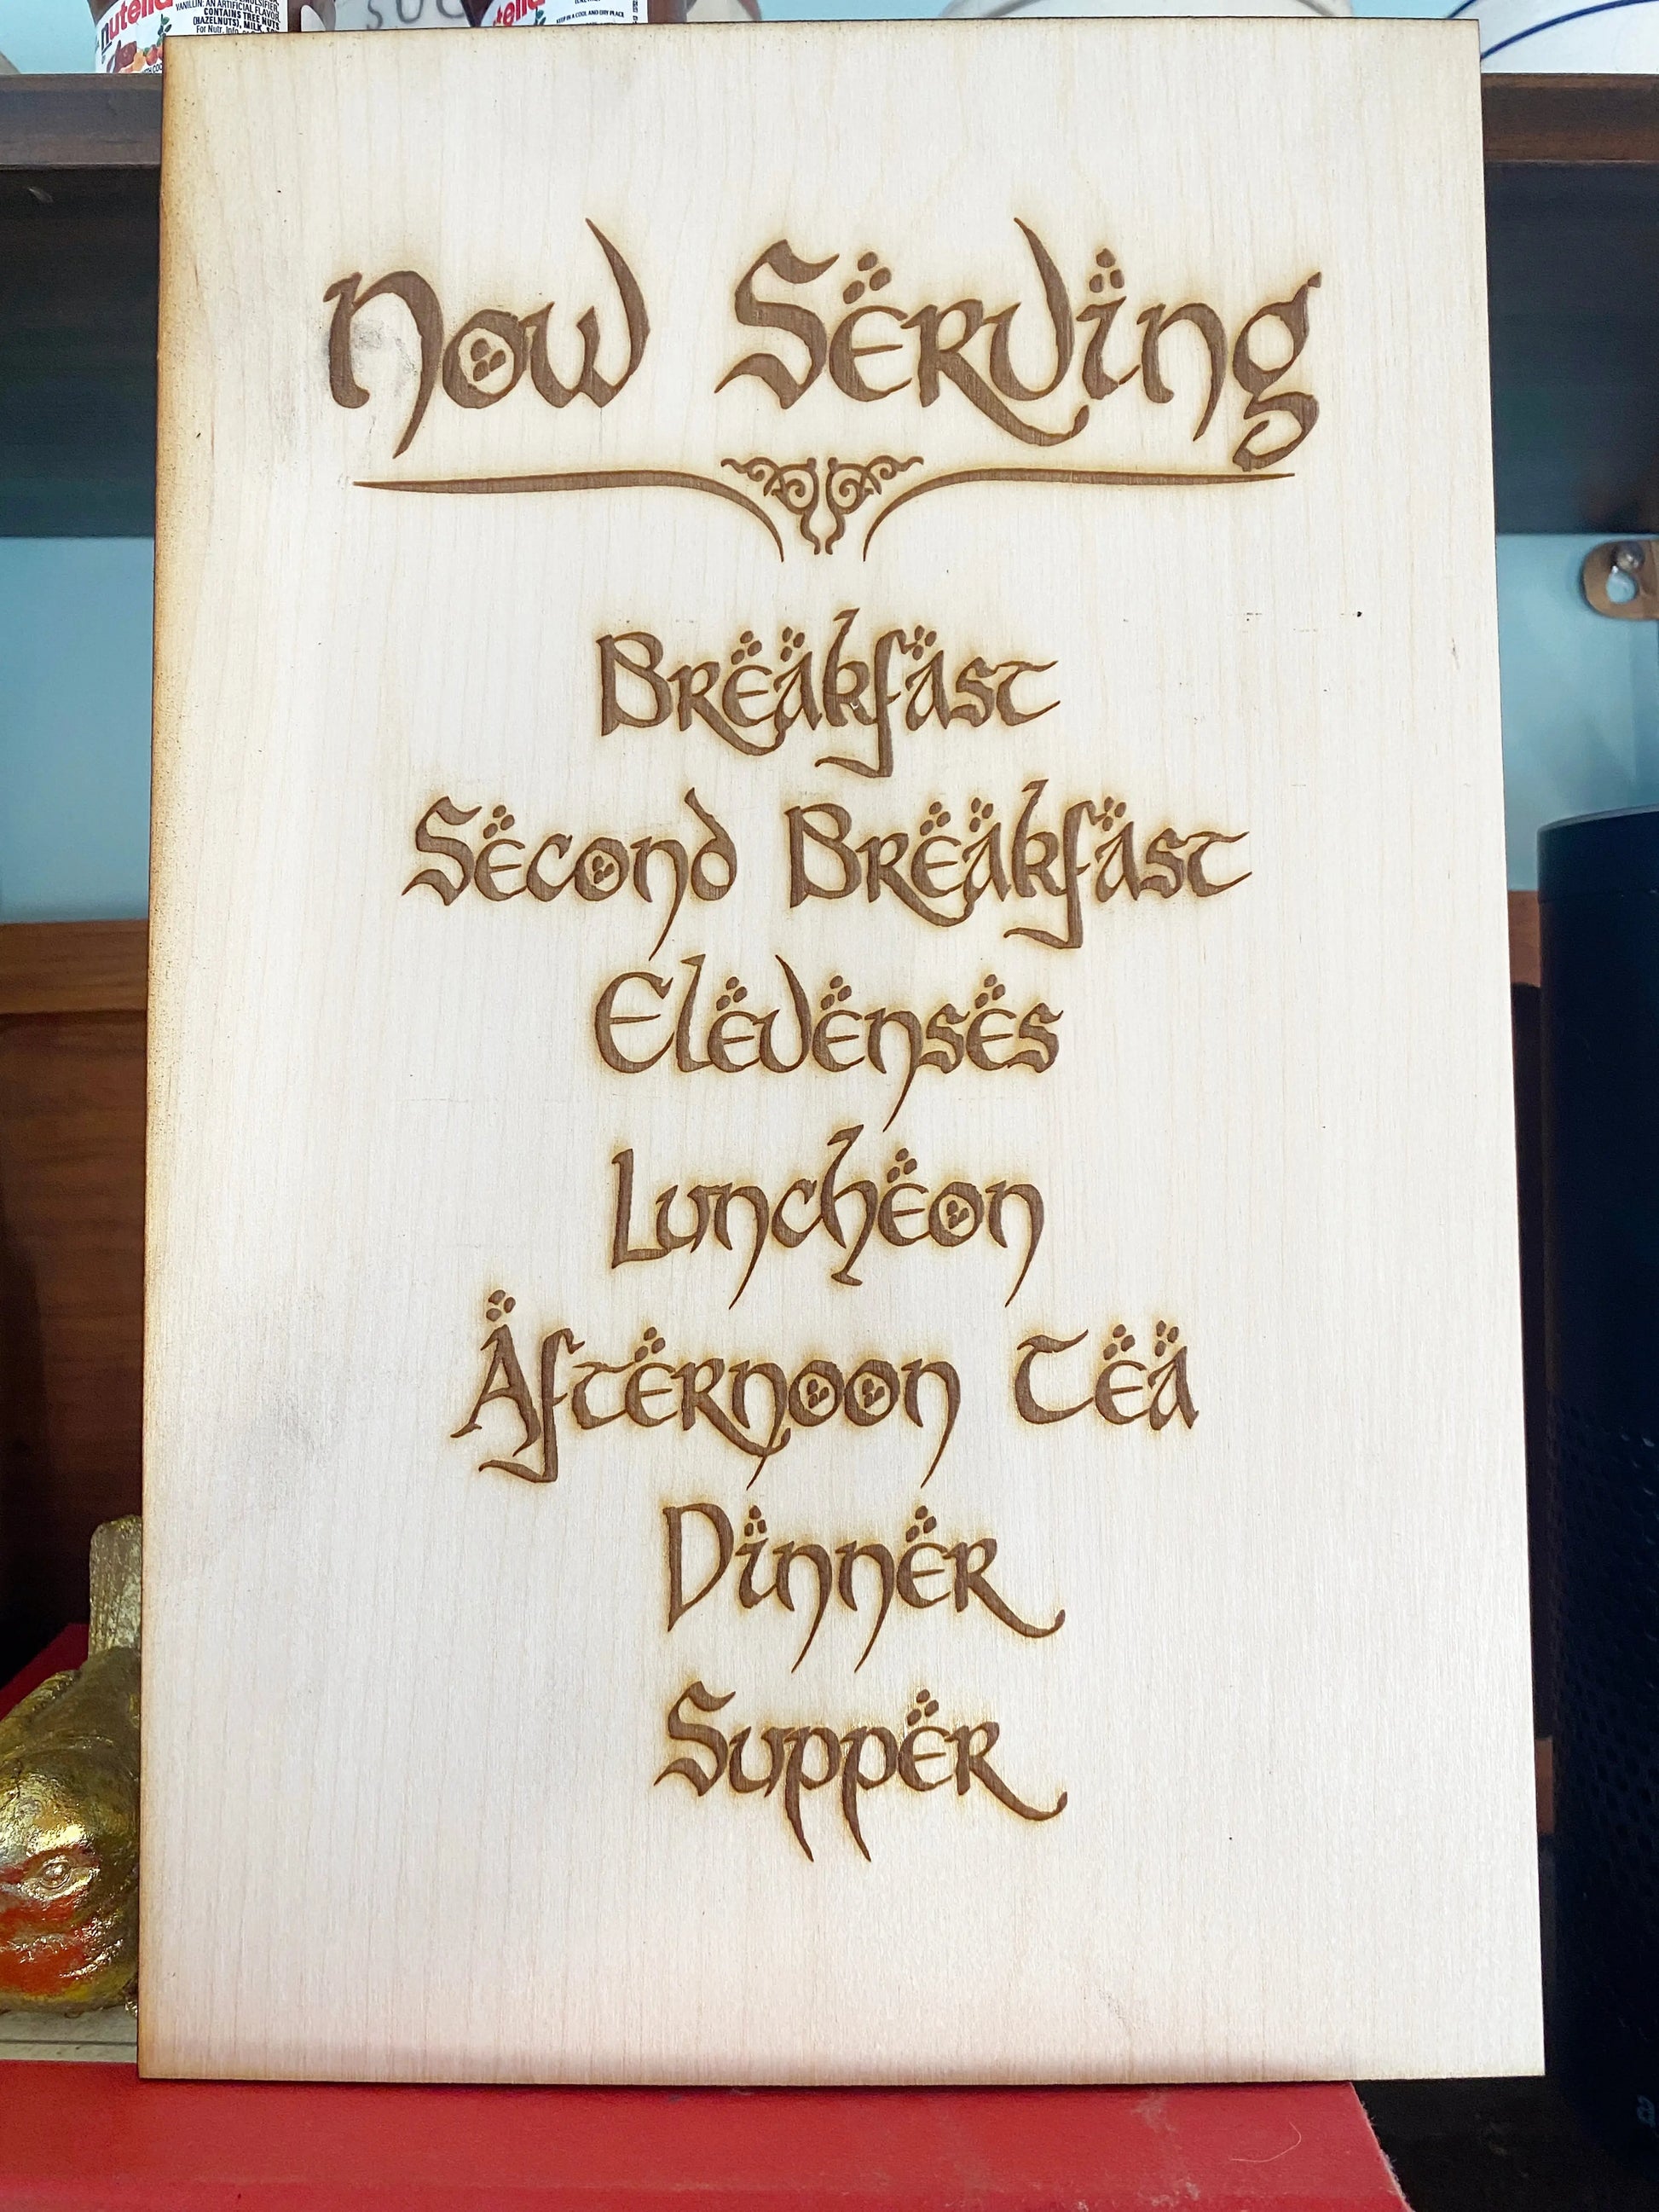 nutella
VANILLIN: AN ARTIFICIAL FLAVOR.
CONTAINS TREE NUTS
(HAZELNUTS), MILK,
For Nutr. Info.
nutella
KEEP IN A COOL AND DRY PLACE
Now Serving
Breakfast
Second Breakfast
Elevenses
Luncheon
Afternoon Tea
Dinner
Supper